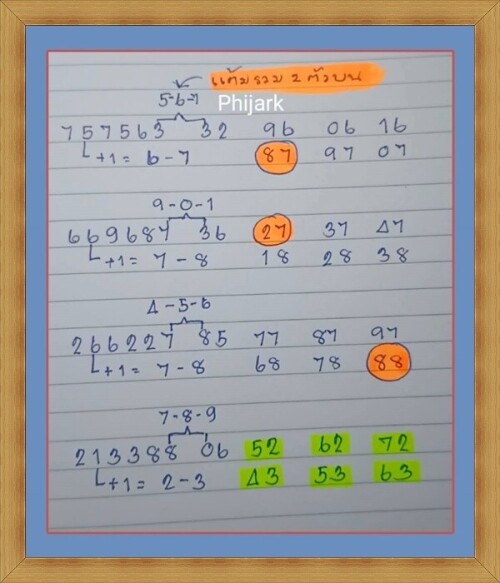 แต้มรวม 2 ตัวบน
5-6-7
Phijark
757563 32 96 06 16
+1 = 6-7 87 97 07
9-0-1
669687 36 27 37 47
+1 = 7-8 18 28 38
4-5-6
266227 85 77 87 97
+1 = 7-8 68 78 88
7-8-9
213388 06 52 62 72
+1 = 2-3 43 53 63